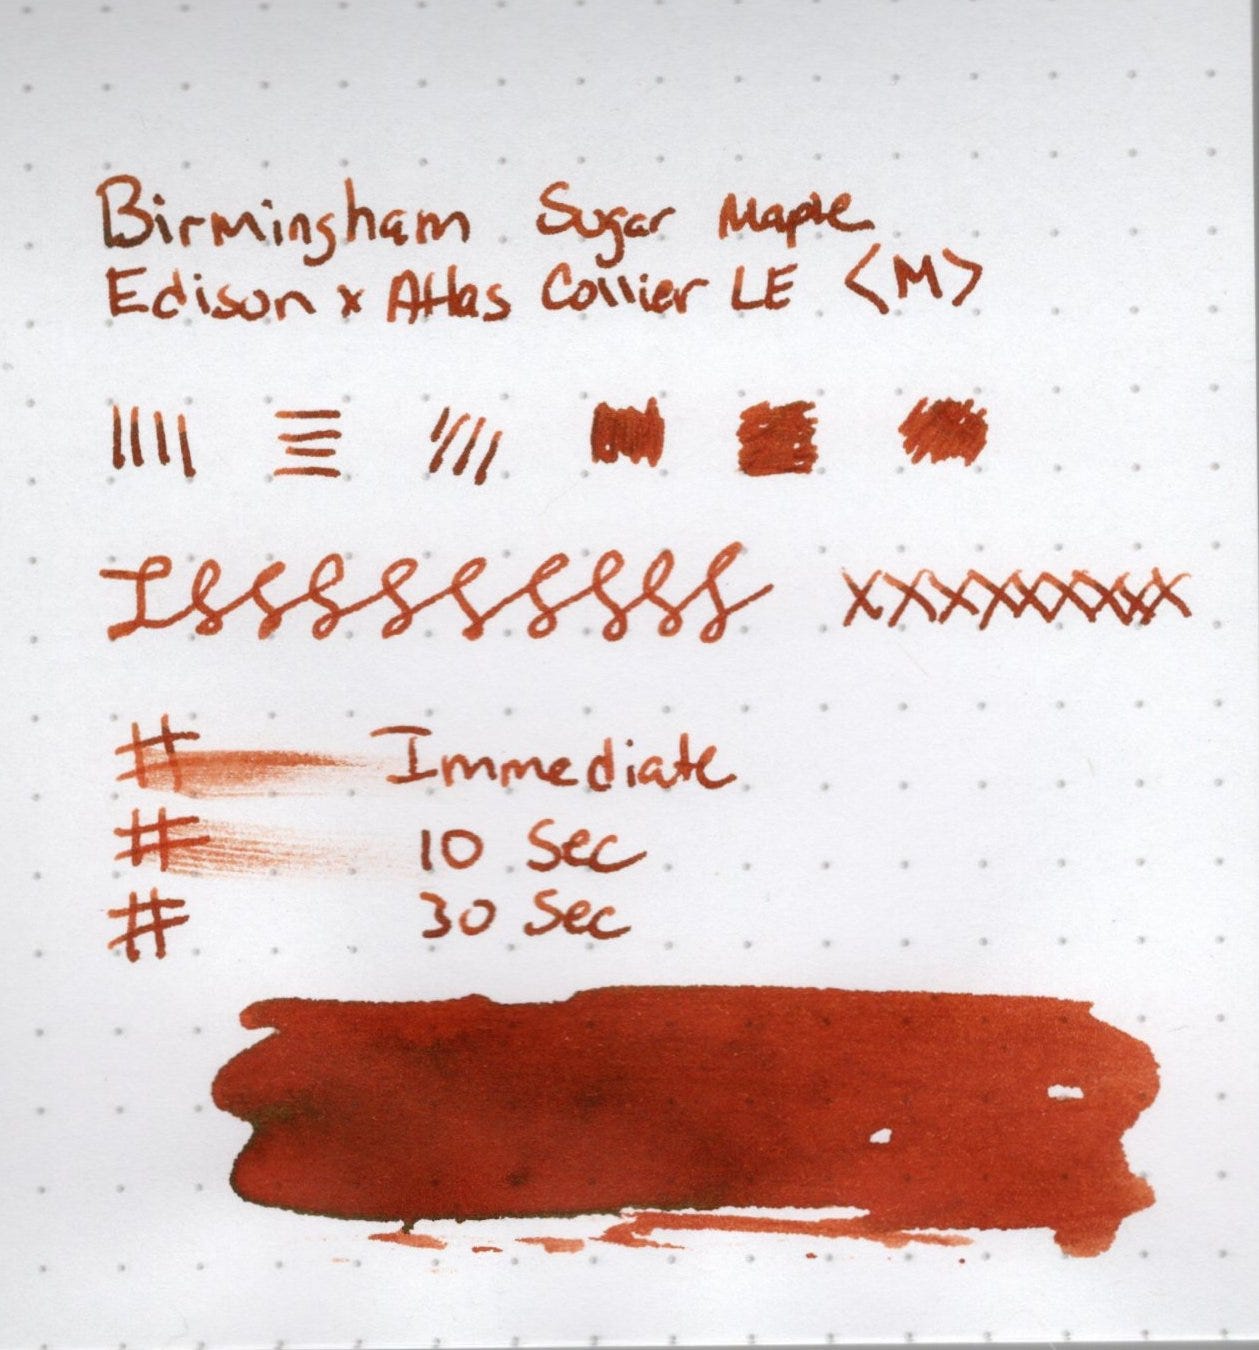 Birmingham Sugar Maple
Edison x Atlas Collier LE <M>
# Immediate
# 10 Sec
# 30 Sec